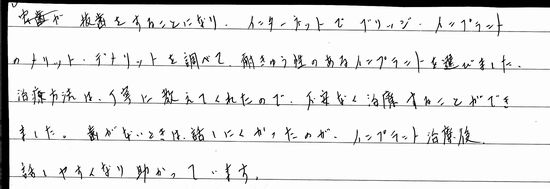 虫歯が 抜歯をすることになり、インターネットでブリッジ・インプラント
のメリット・デメリットを調べて、耐きゅう性のあるインプラントを選びました。
治療方法は、丁寧に教えてくれたので、不安なく治療することができ
ました。歯がないときは、話しにくかったのが、インプラント治療後、
話しやすくなり助かっています。